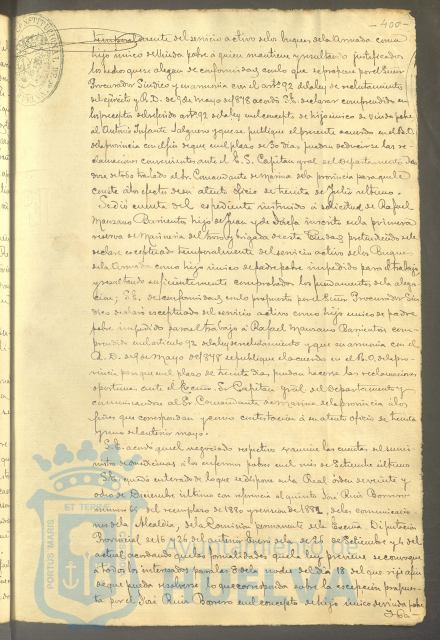 —400—
temporalmente del servicio activo de los buques de la Armada como
hijo único de Viuda pobre á quien mantiene y resultando justificados
los hechos que se alegan de conformidad con lo que se propone por el Señor
Procurador Síndico y en armonía con el artº 92 de la ley de reclutamiento
del ejército y R. D. de 9 de Mayo de 1878 acordó S.E. declarar comprendido en
los preceptos del referido artº 92 de la ley en el concepto de hijo único de viuda pobre
al Antonio Infante Salguero y que se publique el presente acuerdo en el B.O.
de la provincia con el fin de que en el plazo de 30 días puedan deducirse las re-
clamaciones convenientes ante el E. S. Capitan gral del Departamento dan-
dose de todo traslado al Sr. Comandante de Marina de la provincia para que le
conste á los efectos de su atento oficio de treinta de Julio último.
Se dió cuenta del expediente instruido á solicitud de Rafael
Manzano Barrientos hijo de Juan y de Josefa inscrito en la primera
reserva de Marinería del trozo y brigada de esta Ciudad, pretendiendo se le
declare exceptuado temporalmente del servicio activo de los Buques
de la Armada como hijo único de padre pobre impedido para el trabajo
y resultando suficientemente comprobados los fundamentos de la alega-
cion; S.E. de conformidad con lo propuesto por el Señor Procurador Sín-
dico declaró exceptuado del servicio activo como hijo único de padre
pobre impedido para el trabajo á Rafael Manzano Barrientos com-
prendido en el artículo 92 de la ley de reclutamiento y que en armonía con el
R. D. de 9 de Mayo de 1878 se publique el acuerdo en el B.O. de la pro-
vincia para que en el plazo de treinta días, puedan hacerse las reclamaciones
oportunas ante el Excmo. Sr Capitan gral del Departamento y
comunicandose al Sr Comandante de Marina de la provincia á los
fines que correspondan y como contestacion á su atento oficio de treinta
y uno del último mayo.
S.E. acordó que el negociado respectivo examine las cuentas del sumi-
nistro de medicinas á los enfermos pobres en el mes de Setiembre último.
S.E. quedó enterado de lo que se dispone en la Real órden de veinte y
ocho de Diciembre último con referencia al quinto José Ruiz Borrero
número 64 del reemplazo de 1880 y revision de 1881, de las comunicacio-
nes de la Alcaldía, de la Comision permanente de la Excma Diputacion
Provincial de 16 y 26 del anterior Enero de la de 26 de Setiembre y 4 del
actual acordando que con las formalidades que la ley previene se convoque
á todos los interesados para las 8 de la noche del día 18 del que rije a fin
de que pueda resolverse lo que corresponda sobre la excepcion propues-
ta por el José Ruiz Borrero en el concepto de hijo único de viuda pobre
PORTUS MARIS
ET TERRAE
AYUNTAMIENTO
HUELVA